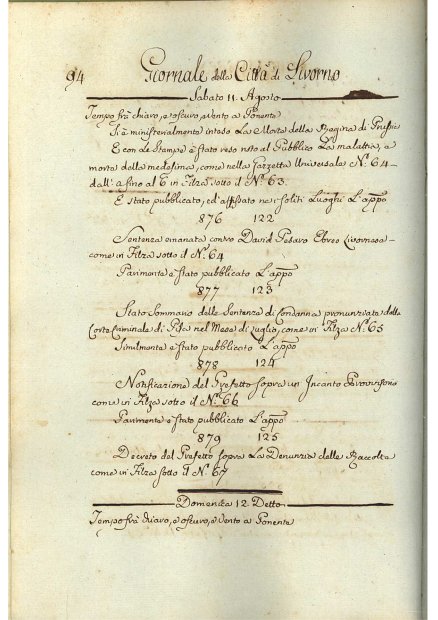 94 Giornale della Città di Livorno
Sabato 11. Agosto
Tempo frà chiaro, e oscuro, e Vento a Ponente
S'è ministerialmente inteso La Morte della Regina di Prussia
E con Le Stampe è stato reso noto al Pubblico La malattia, e
morte della medesima, come nella Gazzetta Universale N.º 64
dall': a fino al 6 in Filza sotto il N.º 63
E stato pubblicato, ed affissato nei soliti Luoghi L'appo
876 122
Sentenza emanata contro David Pesaro Ebreo Livornese
come in Filza sotto il N.º 64
Parimente è stato pubblicato L'appo
877 123
Stato Sommario delle Sentenze di Condanna pronunziate dalla
Corte Criminale di Pisa nel Mese di Luglio, come in Filza N.º 65
Similmente è stato pubblicato L'appo
878 124
Notificazione del Prefetto sopra un Incanto Provvisorio
come in Filza sotto il N.º 66
Parimente è stato pubblicato L'appo
879 125
Decreto del Prefetto sopra La Denunzia delle Raccolte
come in Filza sotto il N.º 67
Domenica 12 Detto
Tempo frà chiaro, e oscuro, e Vento a Ponente